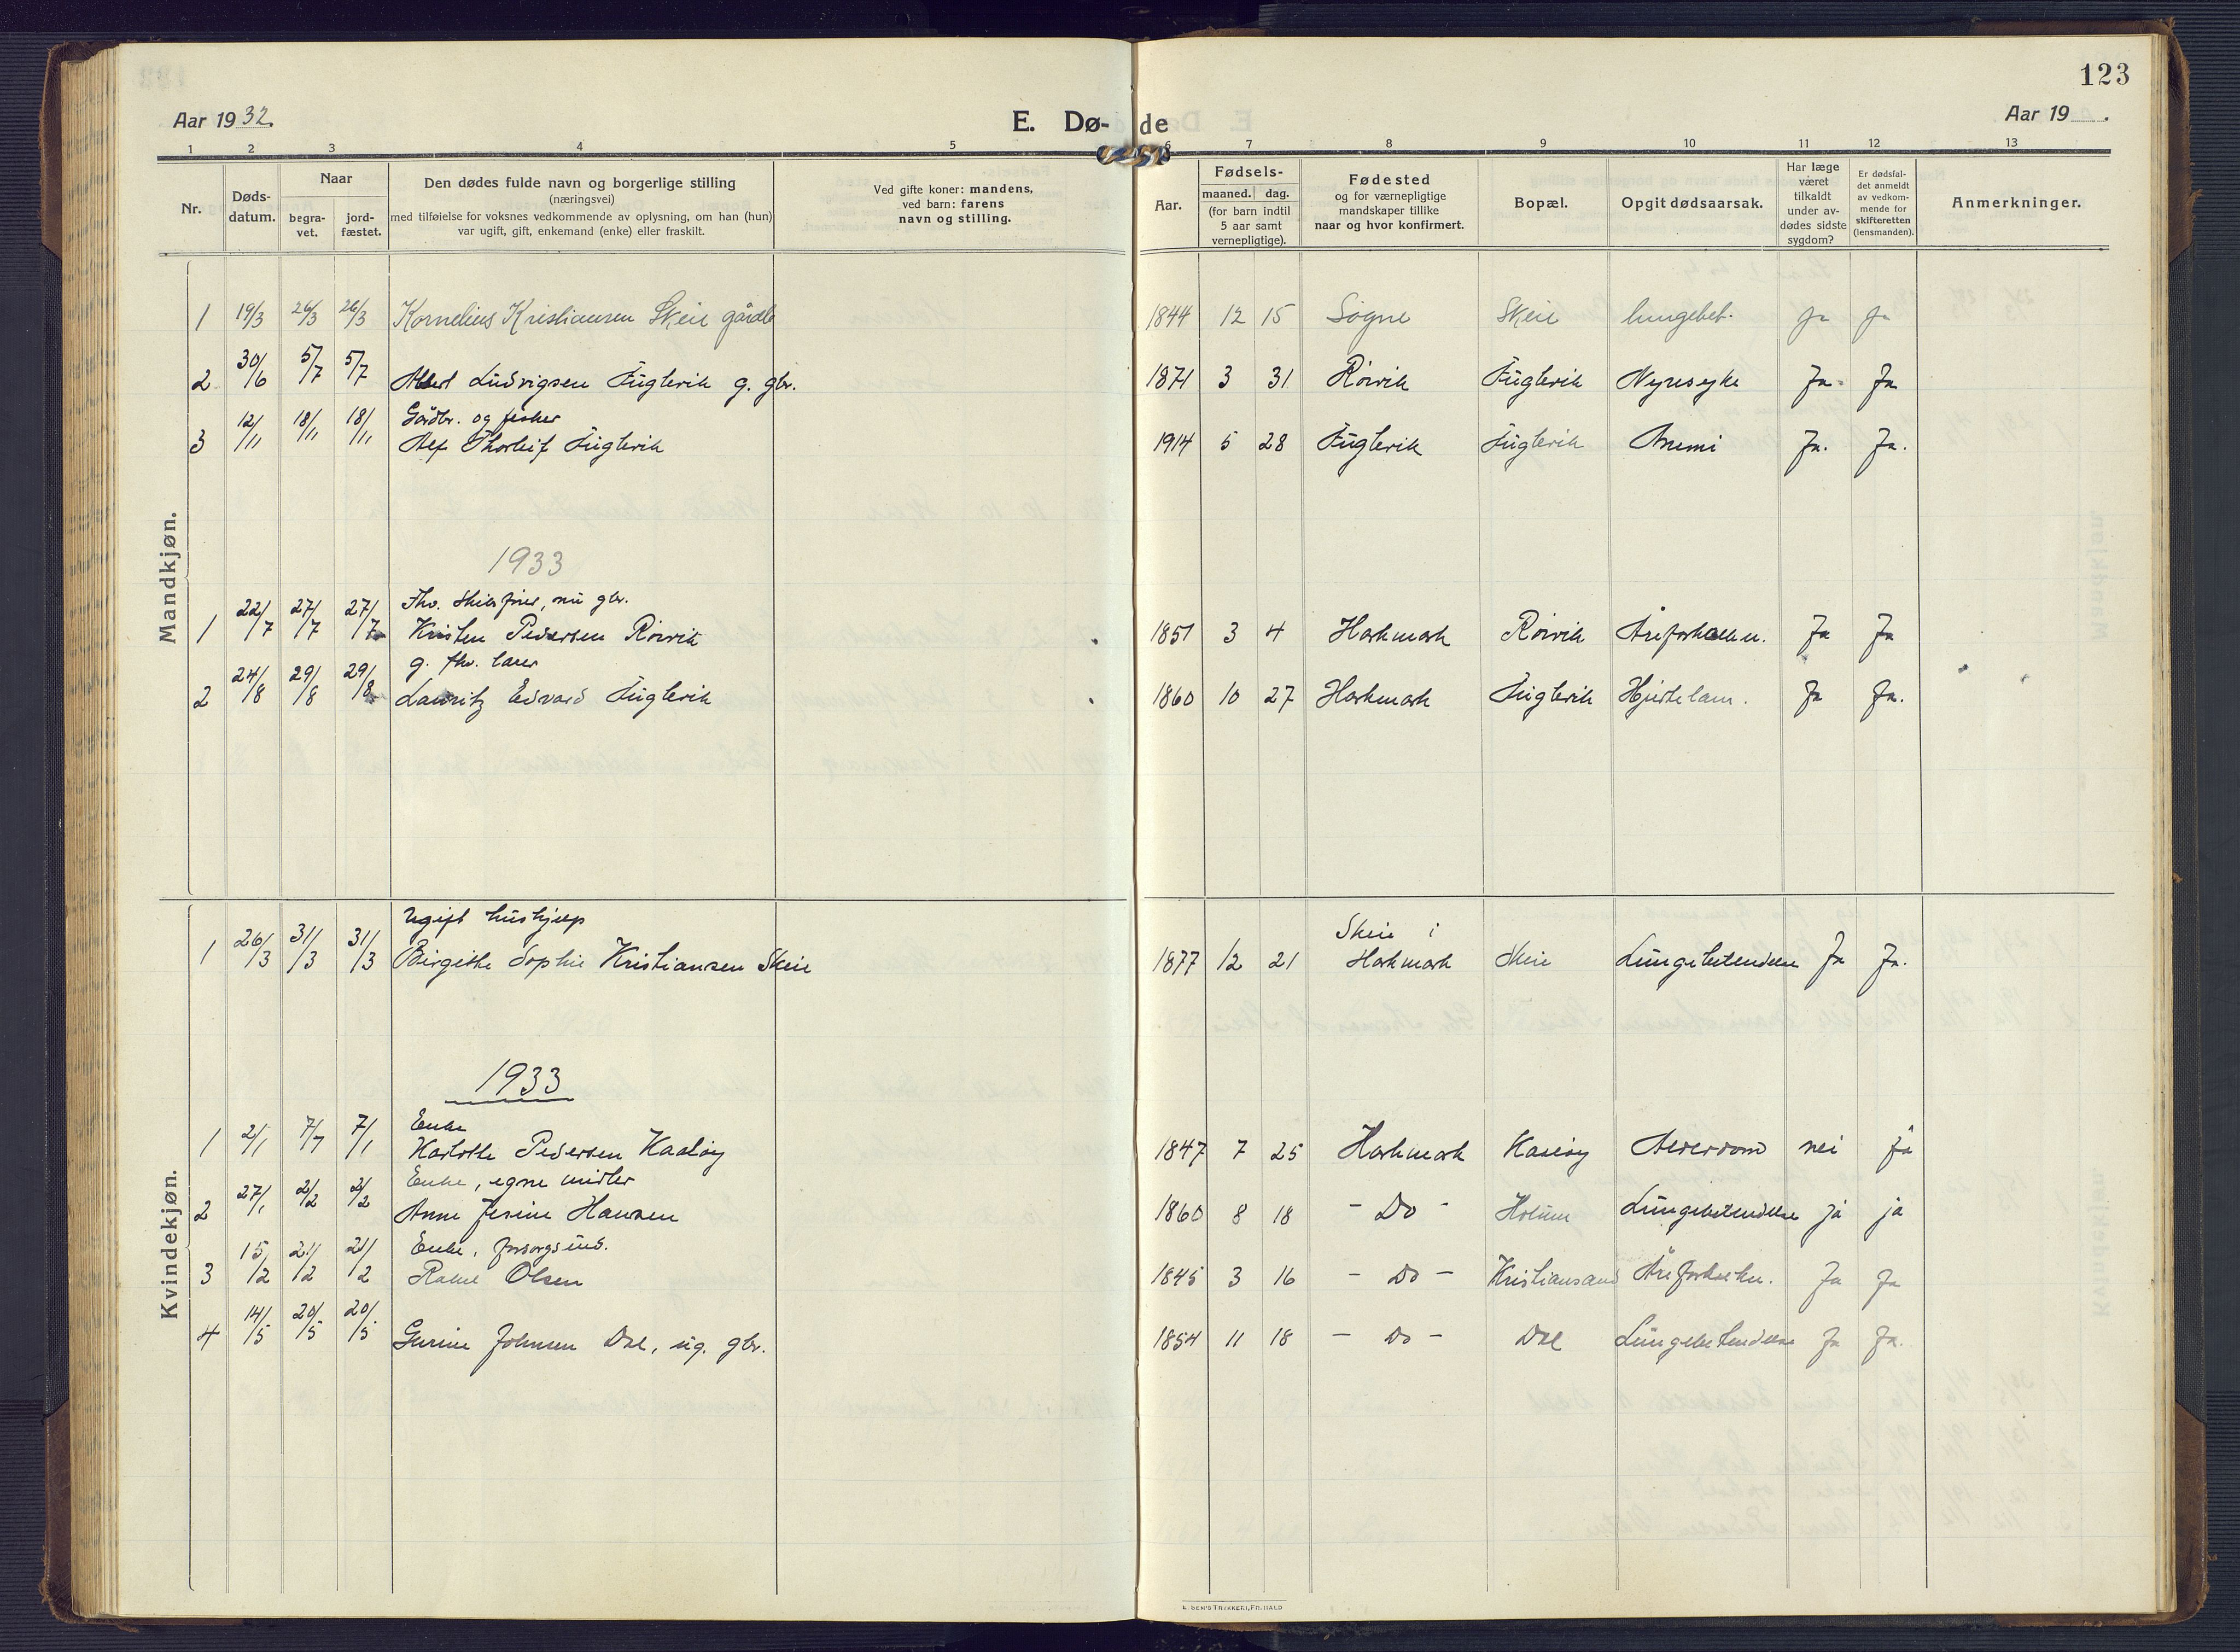 123
Aar 1932.
E. Dø-de
Aar 19 .
1 2 3 4 5 6 7 8 9 10 11 12 13
Nr.
Døds-
datum.
Naar
begra-
vet.
jord-
fæstet.
Den dødes fulde navn og borgerlige stilling
(næringsvei)
med tilføielse for voksnes vedkommende av oplysning, om han (hun)
var ugift, gift, enkemand (enke) eller fraskilt.
Ved gifte koner: mandens,
ved barn: farens
navn og stilling.
Aar.
Fødsels-
maaned. dag.
(for barn indtil
5 aar samt
vernepligtige).
Fødested
og for værnepligtige
mandskaper tillike
naar og hvor konfirmert.
Bopæl.
Opgit dødsaarsak.
Har læge
været
tilkaldt
under av-
dødes sidste
sygdom?
Er dødsfal-
det anmeldt
av vedkom-
mende for
skifteretten
(lensmanden).
Anmerkninger.
Mandkjøn.
1 19/3 26/3 26/3 Kornelius Kristiansen Skeie gårdb 1844 12 15 Søgne Skeie lungebet. Ja Ja
2 30/6 5/7 5/7 Ludvigsen Fuglevik g. gbr. 1871 3 31 Rørvik Fuglevik Nyresyke Ja Ja
Gårdbr. og fisker
3 12/11 18/11 18/11 Alf Thorleif Fuglevik 1914 5 28 Fuglevik Fuglevik Anemi Ja. Ja.
1933
Fhv. skibsfører, nu gbr.
1 22/7 27/7 27/7 Kristen Pedersen Rörvik 1851 3 4 Harkmark Rörvik Åreforkalkn. Ja Ja
g. fhv. lærer
2 24/8 29/8 29/8 Lauritz Edvard Fuglevik 1860 10 27 Harkmark Fuglevik Hjertelam. Ja Ja.
Kvindekjøn.
Ugift hushjelp
Skeie i
1 26/3 31/3 31/3 Birgitte Sophie Kristiansen Skeie 1877 12 21 Harkmark Skeie Lungebetendelse Ja Ja.
1933
Enke
1 2/1 7/1 7/1 Karlotte Pedersen Kaaløy 1847 7 25 Harkmark Alderdom nei ja
Enke, egne midler
2 27/1 2/2 2/2 Anne Jesine Hansen 1860 8 18 - Do - Holum Lungebetendelse ja ja
Enke, forsorgsund.
3 15/2 21/2 21/2 Rakel Olsen 1845 3 16 - Do - Kristiansand Åreforkalkn. Ja Ja
4 14/5 20/5 20/5 Gurine Johnsen Dal, ug. gbr. 1854 11 18 - Do - Dal Lungebetendelse Ja Ja.